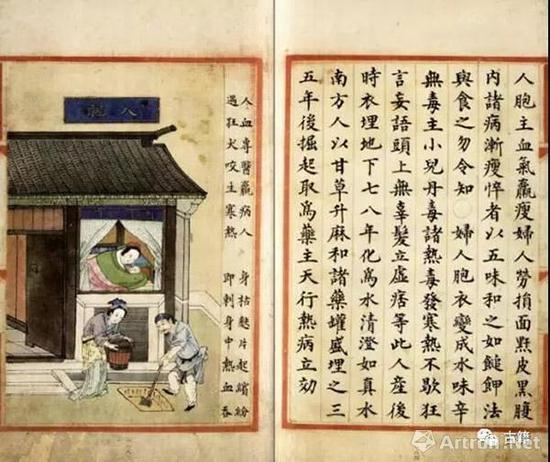 人胞主血氣羸瘦婦人勞損面䵟皮黑腹
內諸病漸瘦悴者以五味和之如䭔䭅法
與食之勿令知○婦人胞衣變成水味辛
無毒主小兒丹毒諸熱毒發寒熱不歇狂
言妄語頭上無辜髮立虛痞等此人產後
時衣埋地下七八年化為水清澄如真水
南方人以甘草升麻和諸藥罐盛埋之三
五年後掘起取為藥主天行熱病立効
人胞
人血專醫羸病人 身枯麩片起繽紛
遇狂犬咬主寒熱 即刺身中熱血吞
古籍
Artron.Net